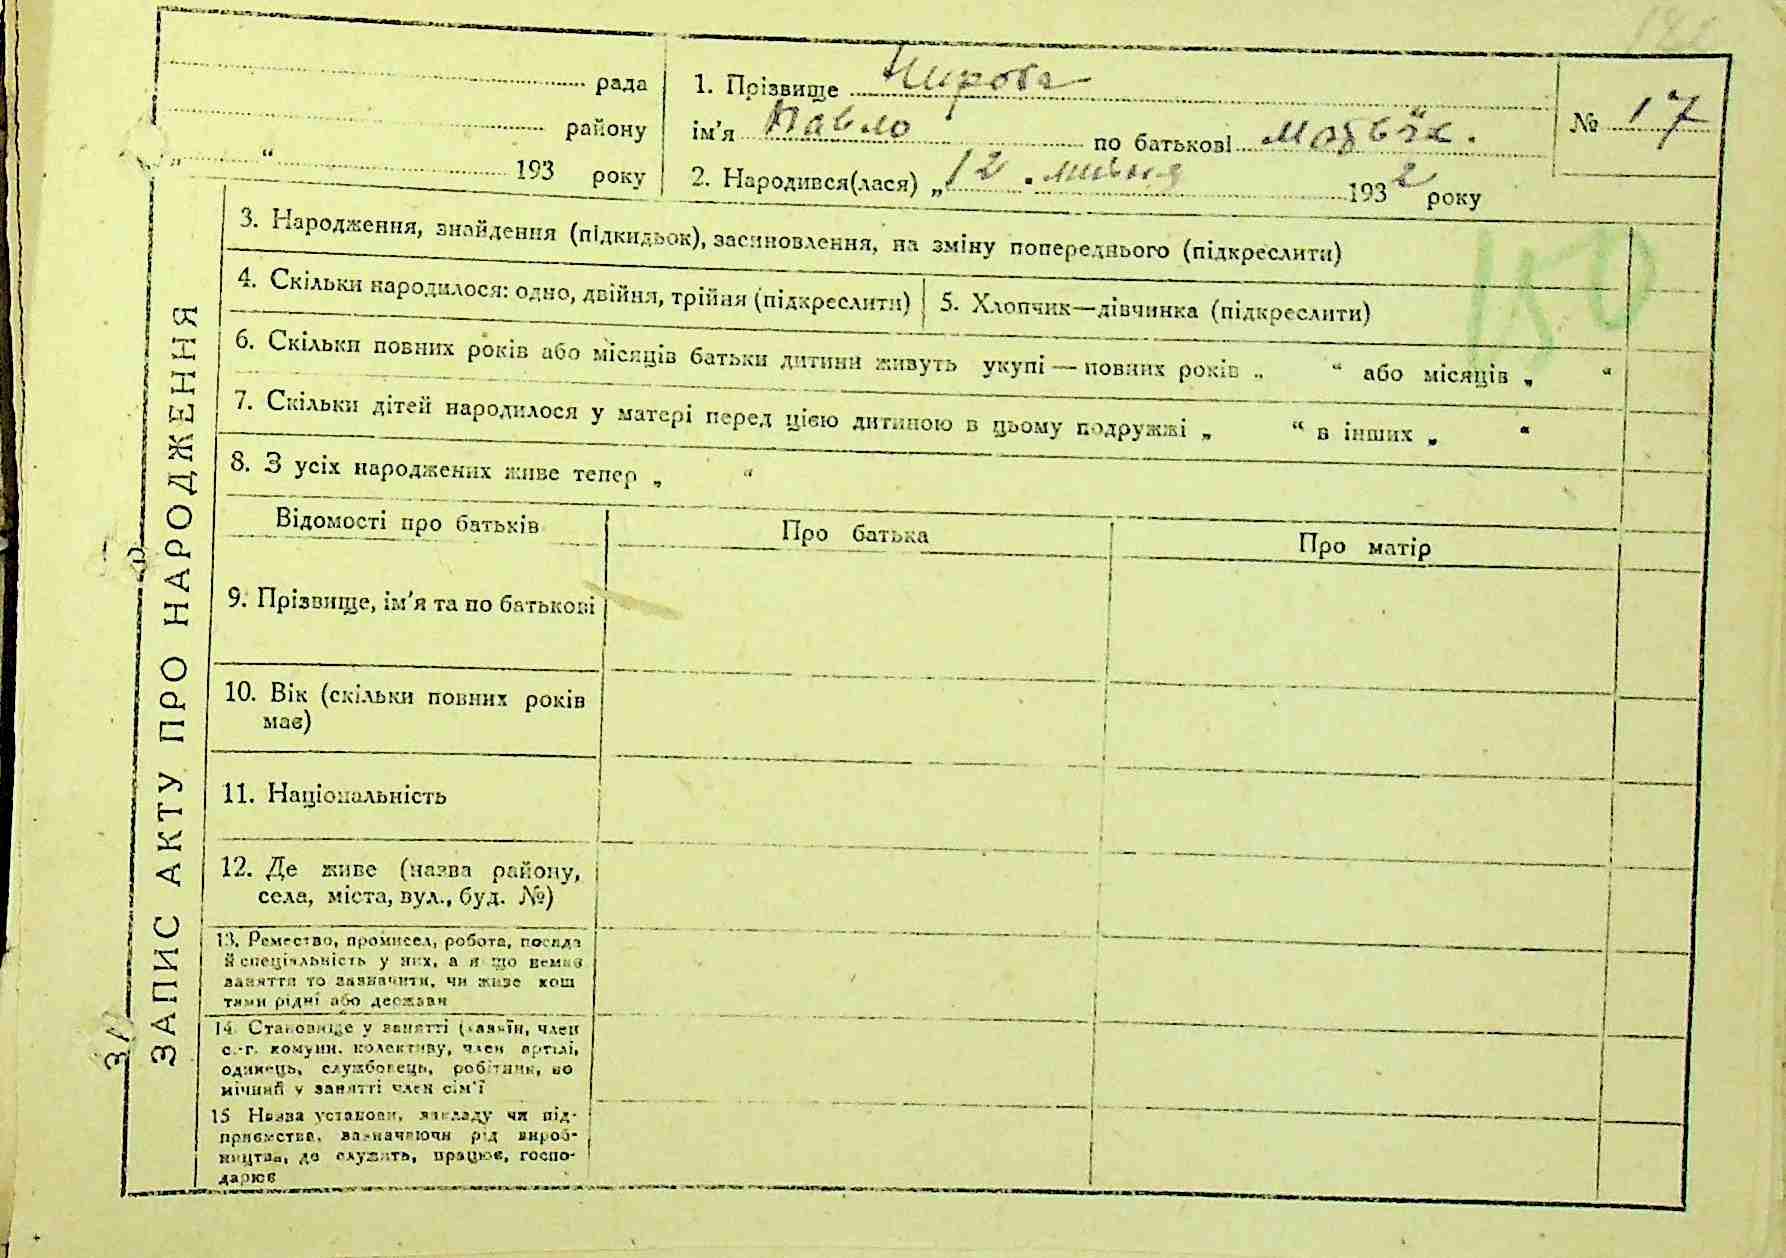 рада
району
„ “ 193 року
1. Прізвище
ім'я Павло по батькові
2. Народився(лася) „12. липня 1932 року
№ 17
150
ЗАПИС АКТУ ПРО НАРОДЖЕННЯ
3. Народження, знайдення (підкидьок), засиновлення, на зміну попереднього (підкреслити)
4. Скільки народилося: одно, двійня, трійня (підкреслити)
5. Хлопчик—дівчинка (підкреслити)
6. Скільки повних років або місяців батьки дитини живуть укупі — повних років „ “ або місяців „ “
7. Скільки дітей народилося у матері перед цією дитиною в цьому подружжі „ “ в інших „ “
8. З усіх народжених живе тепер „ “
Відомості про батьків
Про батька
Про матір
9. Прізвище, ім'я та по батькові
10. Вік (скільки повних років
має)
11. Національність
12. Де живе (назва району,
села, міста, вул., буд. №)
13. Ремество, промисел, робота, посада
й спеціяльність у них, а якщо немає
заняття то зазначити, чи живе кош
тами рідні або держави
14. Становище у занятті (хазяїн, член
с.-г. комуни. колективу, член артілі,
одинець, службовець, робітник, по
мічний у занятті член сім'ї
15 Назва установи, закладу чи під-
приємства, зазначаючи рід вироб-
ництва, де служить, працює, госпо-
дарює